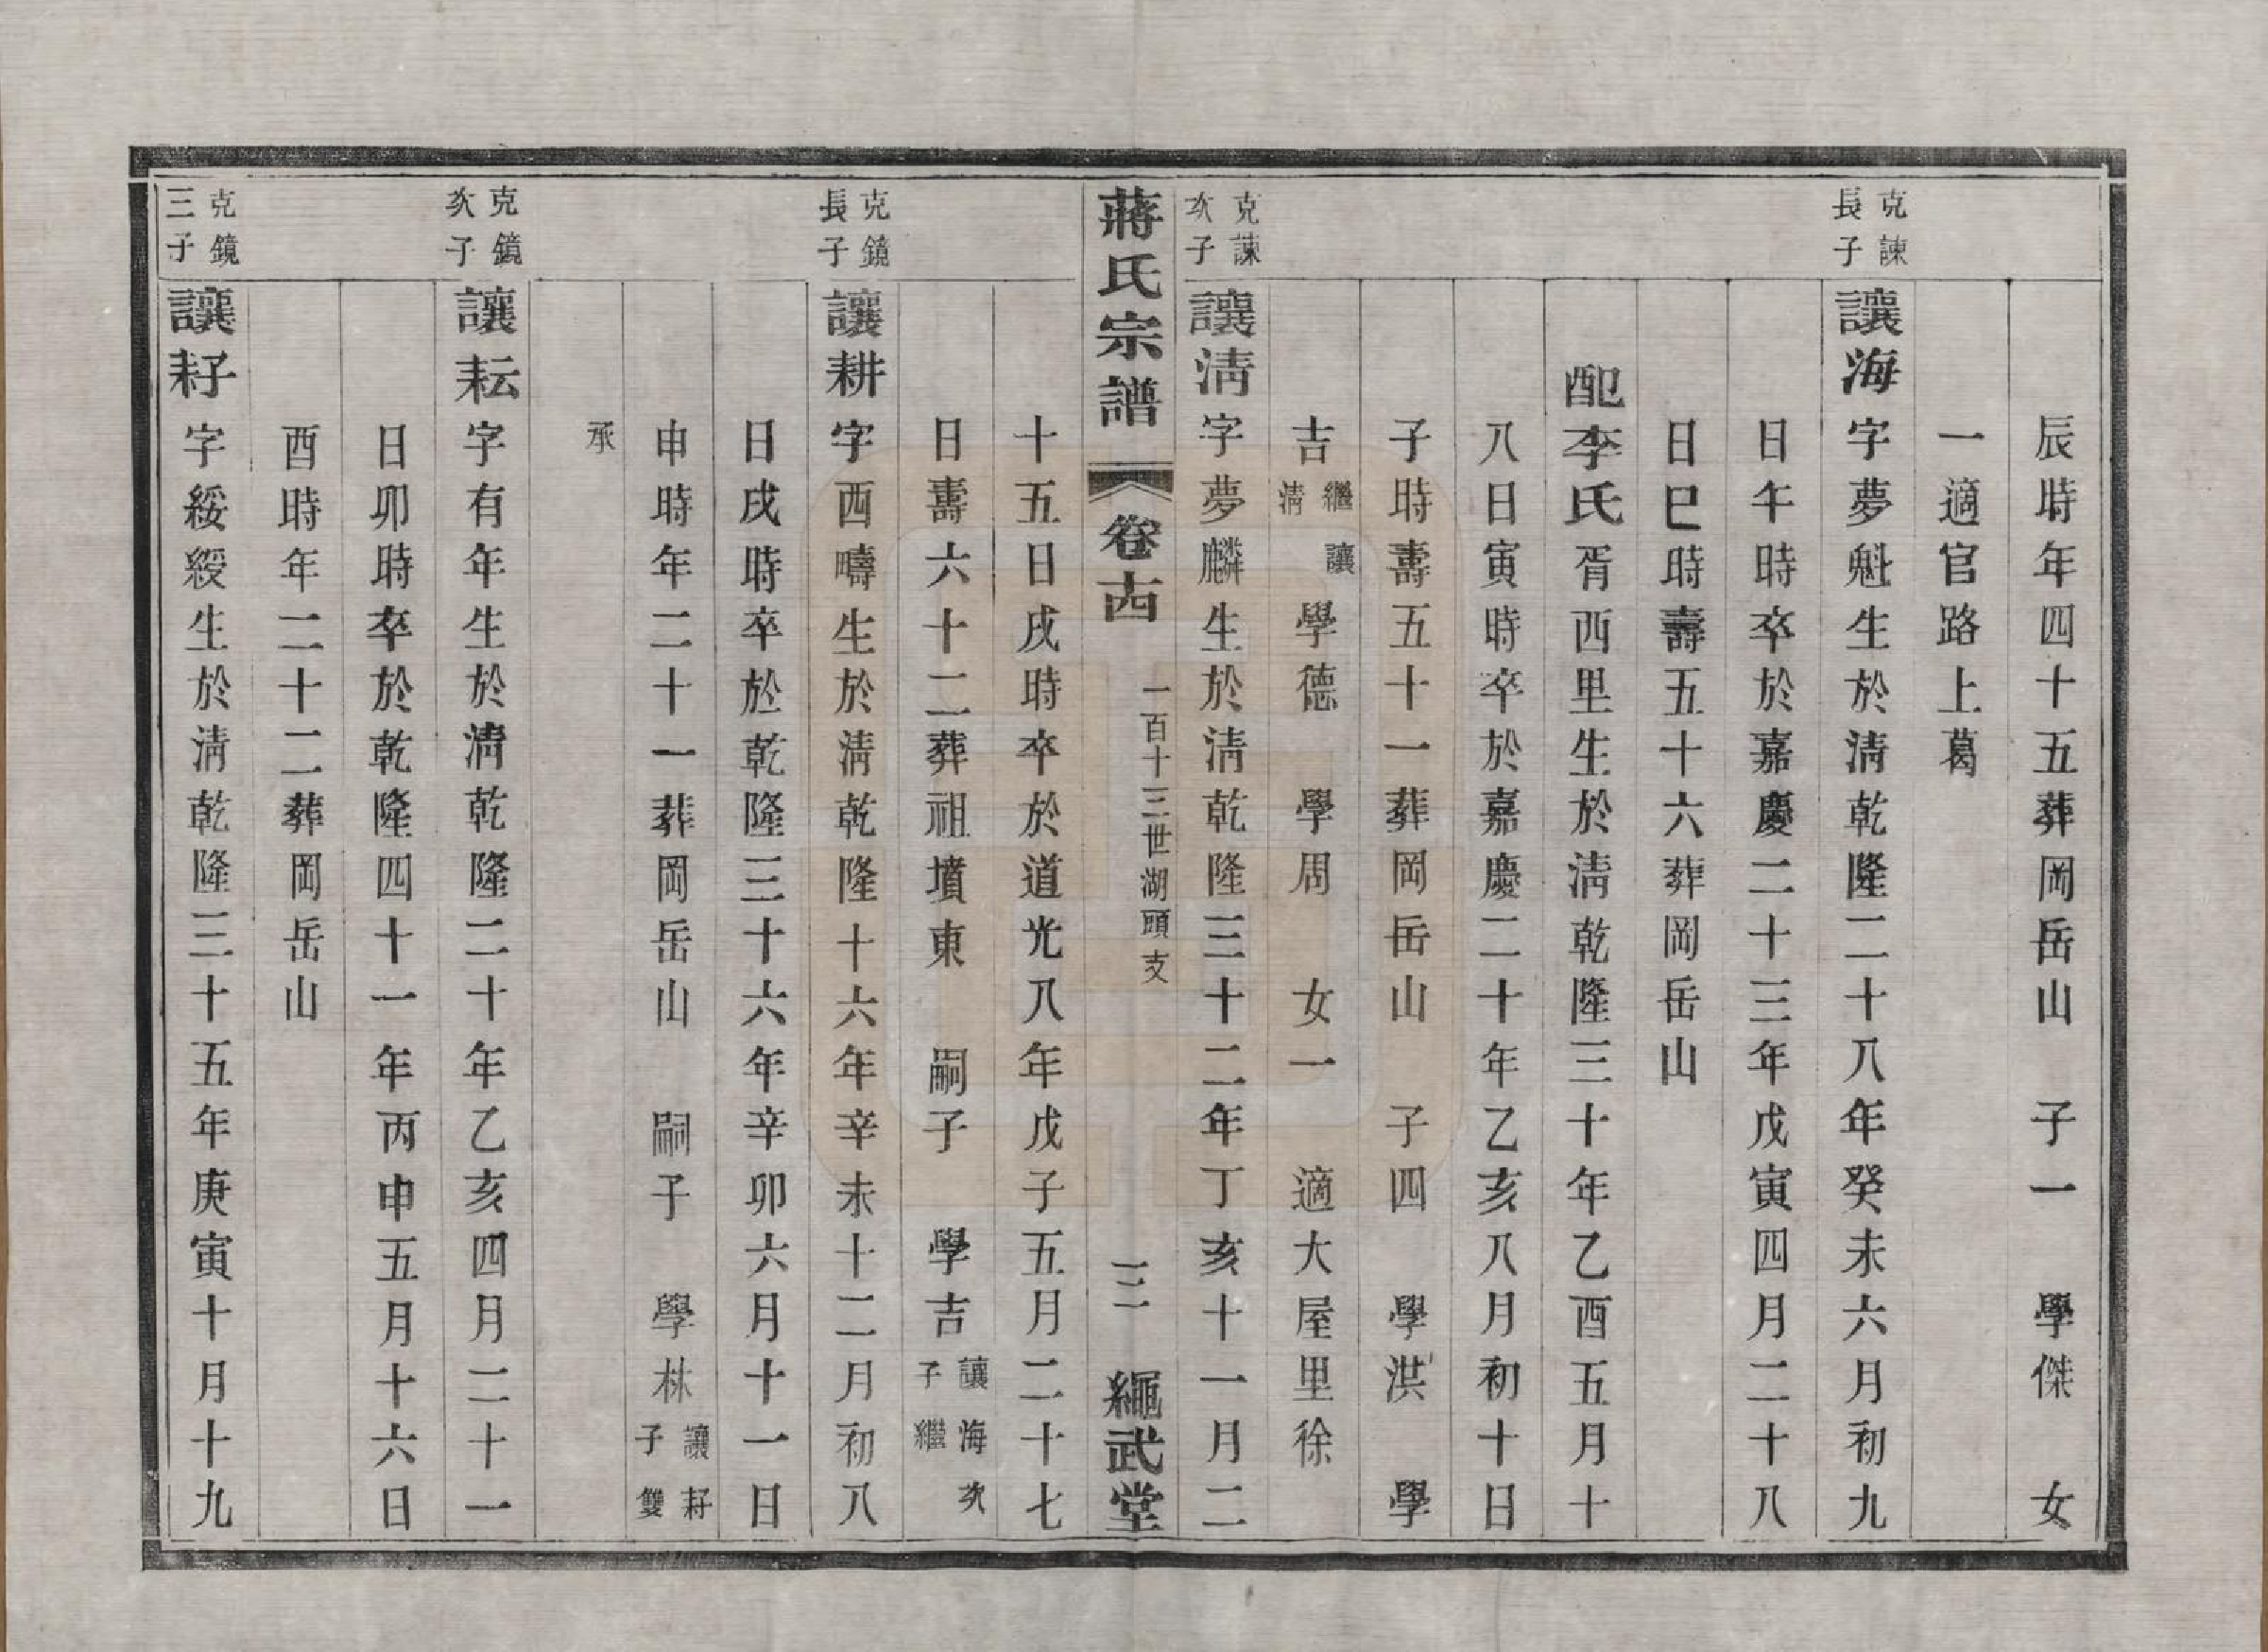 辰時年四十五葬岡岳山　子一　學傑　女
一適官路上葛
克諫長子
讓海字夢魁生於淸乾隆二十八年癸未六月初九
日午時卒於嘉慶二十三年戊寅四月二十八
日巳時壽五十六葬岡岳山
配李氏胥西里生於淸乾隆三十年乙酉五月十
八日寅時卒於嘉慶二十年乙亥八月初十日
子時壽五十一葬岡岳山　子四　學洪　學
吉繼讓淸　學德　學周　女一　適大屋里徐
克諫次子
讓淸字夢麟生於淸乾隆三十二年丁亥十一月二
蔣氏宗譜　卷十四　一百十三世湖頭支　三　繩武堂
十五日戌時卒於道光八年戊子五月二十七
日壽六十二葬祖墳東　嗣子　學吉讓海次子繼
克鏡長子
讓耕字西疇生於淸乾隆十六年辛未十二月初八
日戌時卒於乾隆三十六年辛卯六月十一日
申時年二十一葬岡岳山　嗣子　學林讓耔子雙
承
克鏡次子
讓耘字有年生於淸乾隆二十年乙亥四月二十一
日卯時卒於乾隆四十一年丙申五月十六日
酉時年二十二葬岡岳山
克鏡三子
讓耔字綏綬生於淸乾隆三十五年庚寅十月十九